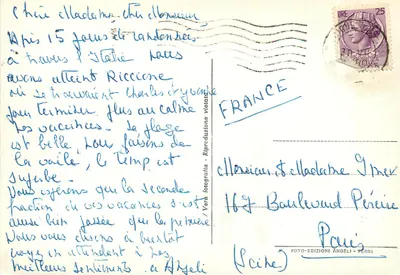 Chère Madame, cher Monsieur,
Après 15 jours de randonnées
à travers l'Italie nous
avons atteint Riccione,
où se trouvaient Charles et Yvonne
pour terminer plus au calme
les vacances. La plage
est belle, nous faisons de
la voile, le temps est
superbe.
Nous espérons que la seconde
fraction de vos vacances s'est
aussi bien passée que la première
Nous vous disons à bientôt
croyez en attendant à nos
meilleurs sentiments.
Vera fotografia - Riproduzione vietata
LIRE 25
FRANCE
Monsieur & Madame
167 Boulevard Péreire
Paris
(Seine)
FOTO-EDIZIONI ANGELI -